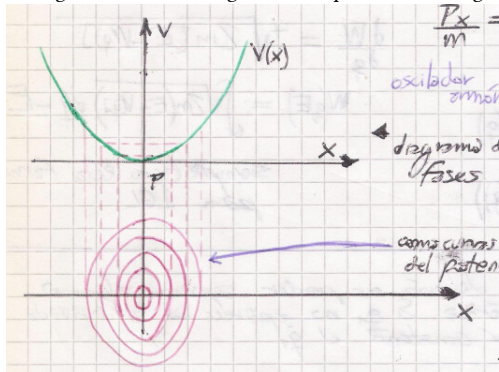 V
V(x)
Px/m =
oscilador
armóni
X
diagrama d
fases
P
como curvas
del poten
X